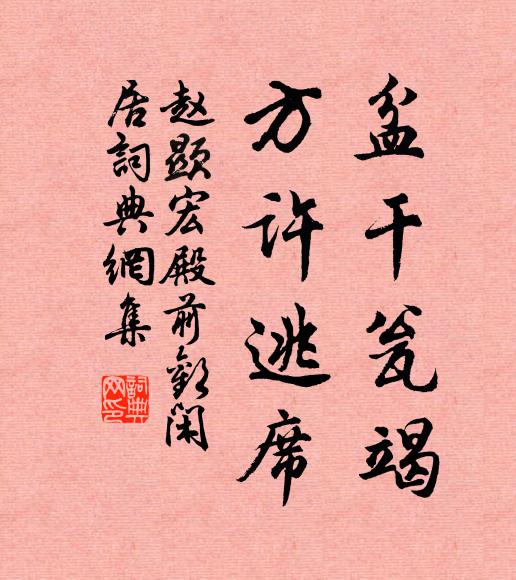 盆干瓮竭
方许逃席
赵显宏殿前歡闲
居詞典網集
詞典网印